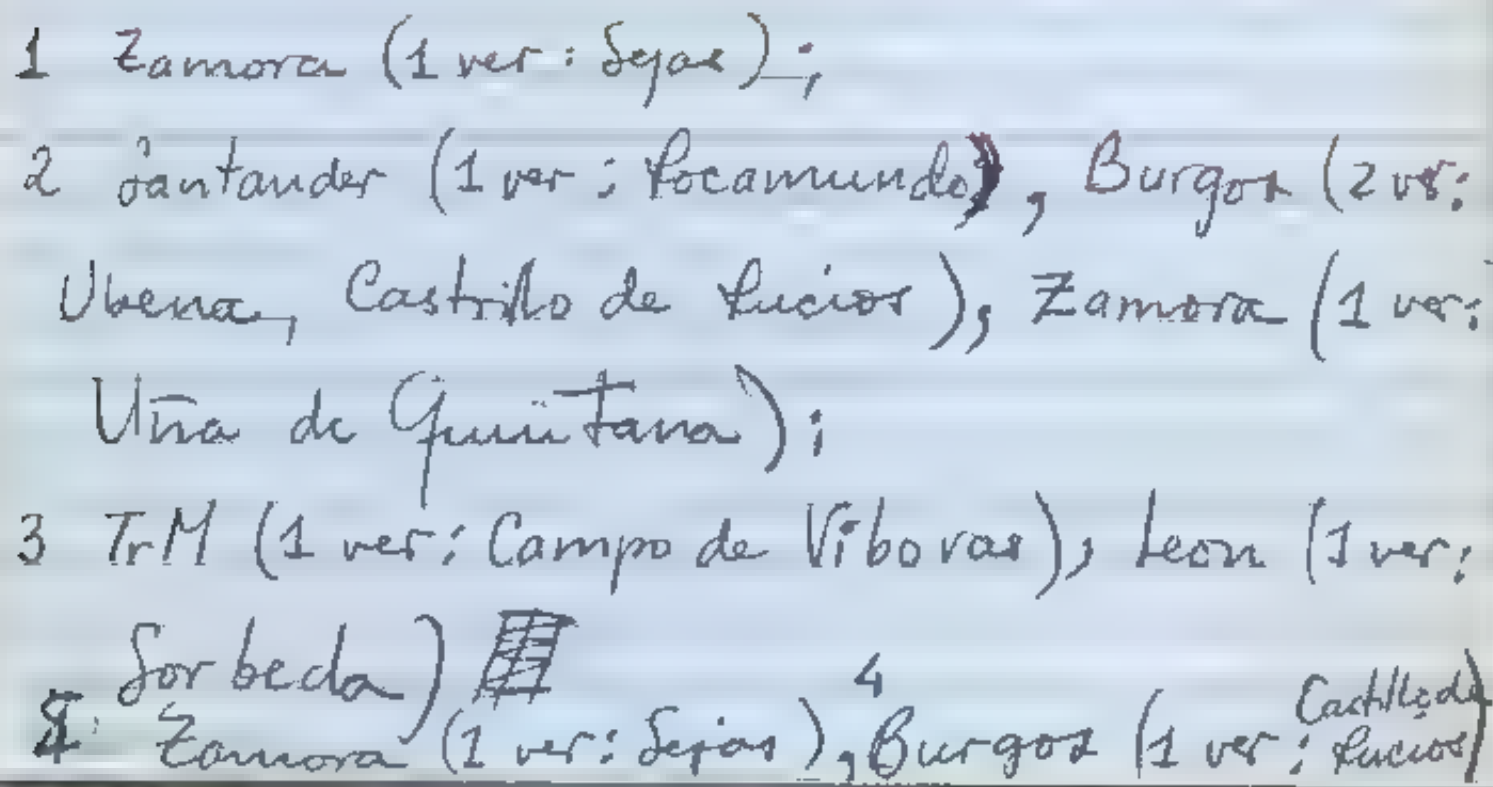 1 Zamora (1 ver: Sejas);
2 Santander (1 ver: Locamundo), Burgos (2 ver:
Ubena, Castrillo de Lucios), Zamora (1 ver:
Uña de Quintana);
3 TrM (1 ver: Campo de Víboras), Leon (1 ver:
Sorbeda)
Zamora (1 ver: Sejas), 4 Burgos (1 ver: Castillo de Lucios)